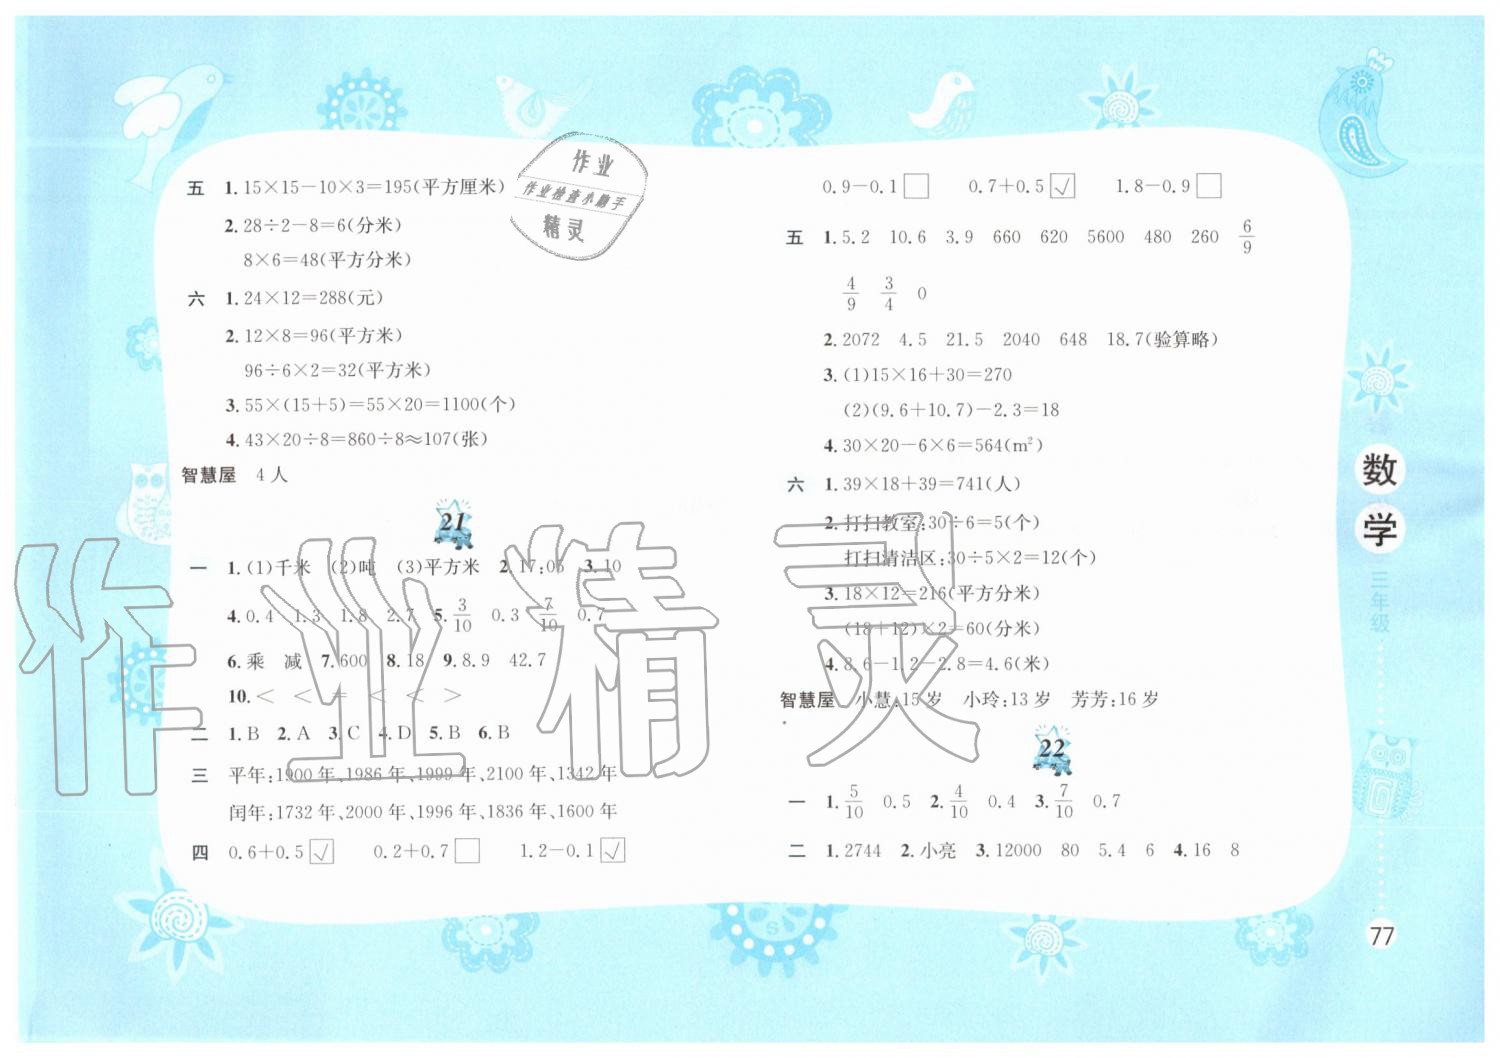 五 1. 15×15−10×3=195(平方厘米)
2. 28÷2−8=6(分米)
8×6=48(平方分米)
六 1. 24×12=288(元)
2. 12×8=96(平方米)
96÷6×2=32(平方米)
3. 55×(15+5)=55×20=1100(个)
4. 43×20÷8=860÷8≈107(张)
智慧屋 4人
21
一 1. (1)千米 (2)吨 (3)平方米 2. 17:05 3. 10
4. 0.4 1.3 1.8 2.7 5. 3/10 0.3 7/10 0.7
6. 乘 减 7. 600 8. 18 9. 8.9 42.7
10. < < = < < >
二 1. B 2. A 3. C 4. D 5. B 6. B
三 平年:1900年、1986年、1999年、2100年、1342年
闰年:1732年、2000年、1996年、1836年、1600年
四 0.6+0.5☑ 0.2+0.7□ 1.2−0.1☑
0.9−0.1□ 0.7+0.5☑ 1.8−0.9□
五 1. 5.2 10.6 3.9 660 620 5600 480 260 6/9
4/9 3/4 0
2. 2072 4.5 21.5 2040 648 18.7(验算略)
3. (1)15×16+30=270
(2)(9.6+10.7)−2.3=18
4. 30×20−6×6=564(m²)
六 1. 39×18+39=741(人)
2. 打扫教室:30÷6=5(个)
打扫清洁区:30÷5×2=12(个)
3. 18×12=216(平方分米)
(18+12)×2=60(分米)
4. 8.6−1.2−2.8=4.6(米)
智慧屋 小慧:15岁 小玲:13岁 芳芳:16岁
22
一 1. 5/10 0.5 2. 4/10 0.4 3. 7/10 0.7
二 1. 2744 2. 小亮 3. 12000 80 5.4 6 4. 16 8
数学
三年级
77
作业
作业检查小助手
精灵
作业精灵